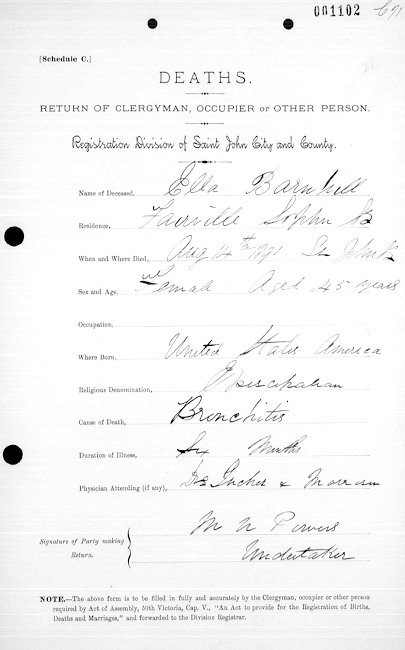 001102
[Schedule C.]
DEATHS.
RETURN OF CLERGYMAN, OCCUPIER OR OTHER PERSON.
Registration Division of Saint John City and County.
Name of Deceased, Ella Barnhill
Residence, Fairville
When and Where Died, Aug 14th 1891 St John
Sex and Age, Female Aged 45 years
Occupation,
Where Born, United States America
Religious Denomination, Episcopalian
Cause of Death, Bronchitis
Duration of Illness, Six Months
Physician Attending (if any), Drs &
M N Powers
Signature of Party making
Return.
Undertaker
NOTE.—The above form is to be filled in fully and accurately by the Clergyman, occupier or other person
required by Act of Assembly, 50th Victoria, Cap. V., "An Act to provide for the Registration of Births,
Deaths and Marriages," and forwarded to the Division Registrar.